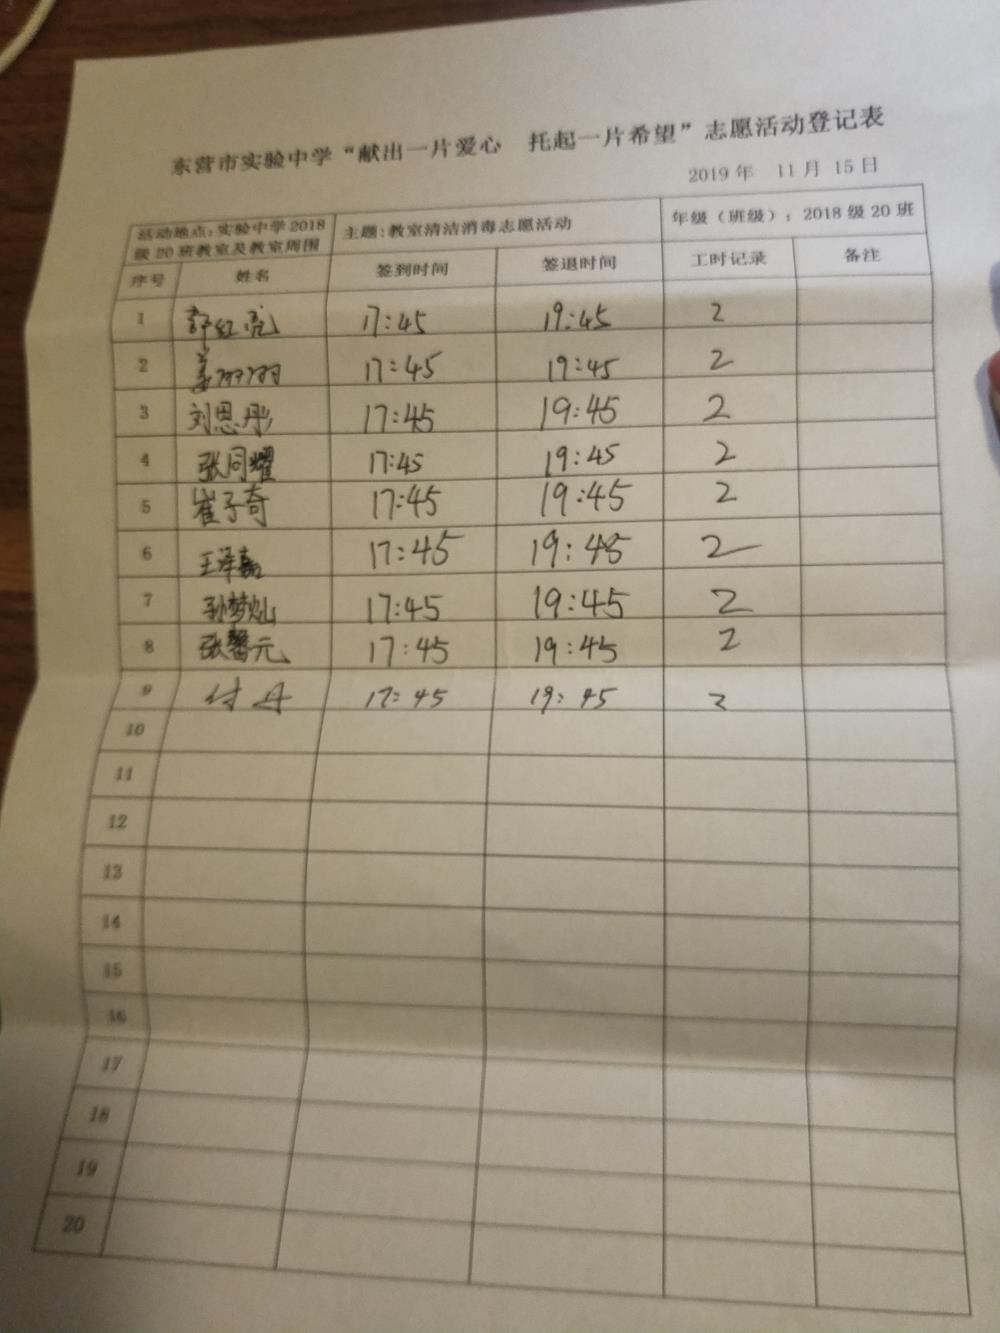 东营市实验中学“献出一片爱心 托起一片希望”志愿活动登记表
2019年 11月 15日
活动地点：实验中学2018级20班教室及教室周围 主题：教室清洁消毒志愿活动 年级（班级）：2018级20班
序号 姓名 签到时间 签退时间 工时记录 备注
1 红亮 17:45 19:45 2
2 姜 17:45 19:45 2
3 刘恩彤 17:45 19:45 2
4 张同耀 17:45 19:45 2
5 崔子奇 17:45 19:45 2
6 王泽嘉 17:45 19:45 2
7 孙梦灿 17:45 19:45 2
8 张馨元 17:45 19:45 2
9 付丹 17:45 19:45 2
10
11
12
13
14
15
16
17
18
19
20